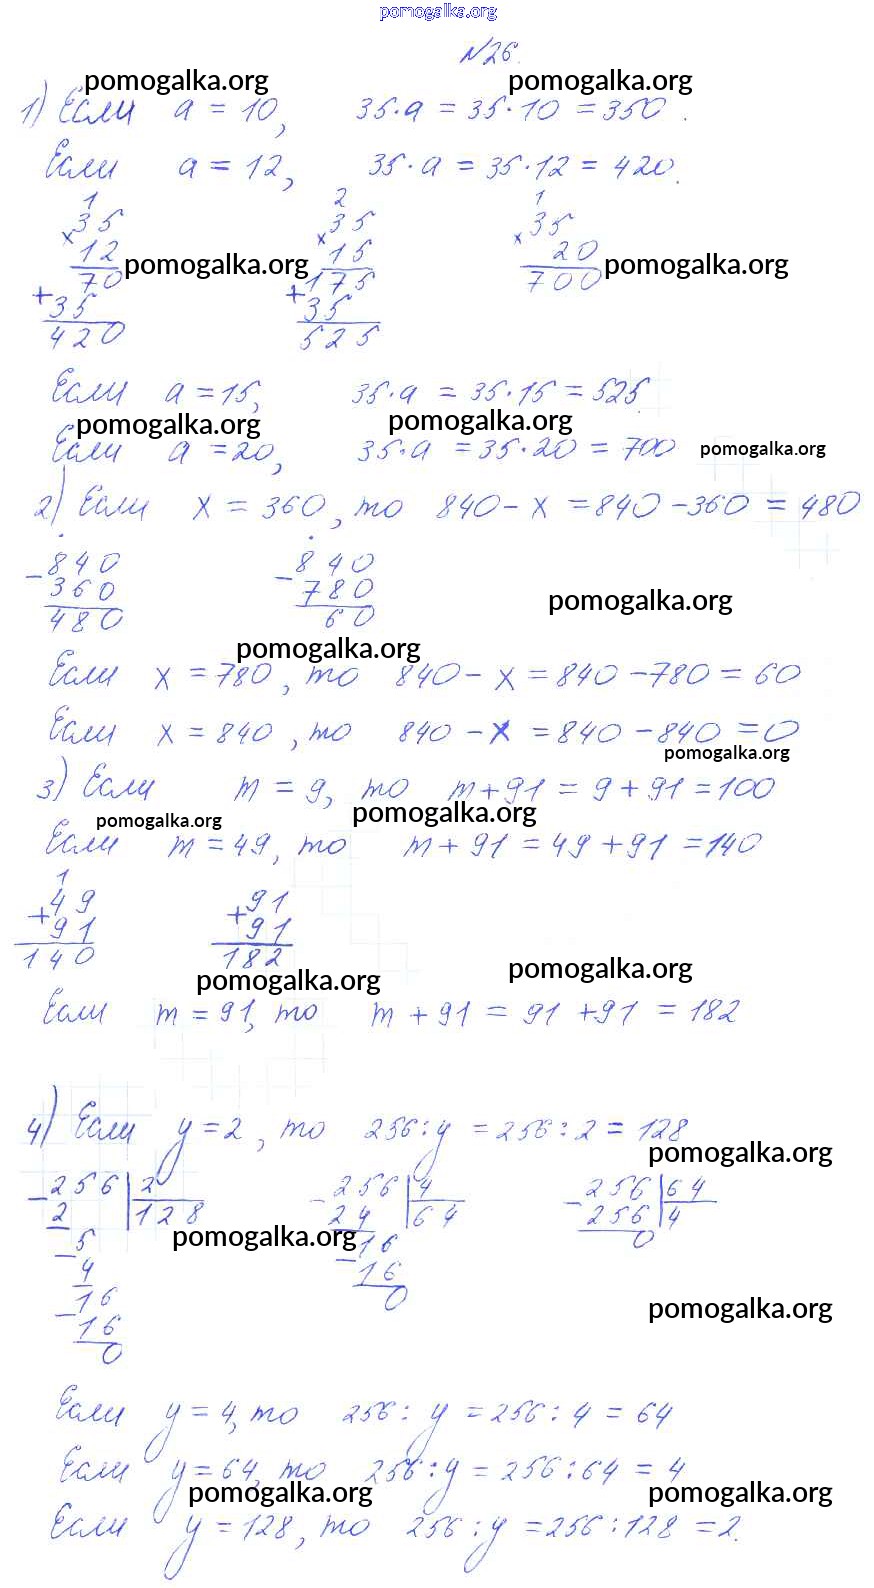 pomogalka.org
№26.
pomogalka.org pomogalka.org
1) Если a = 10, 35·a = 35·10 = 350.
Если a = 12, 35·a = 35·12 = 420.
1 2 1
35 35 35
× 12 × 15 × 20
pomogalka.org pomogalka.org
70 175 700
+ 35 + 35
420 525
Если a = 15, 35·a = 35·15 = 525.
pomogalka.org pomogalka.org
Если a = 20, 35·a = 35·20 = 700
pomogalka.org
2) Если x = 360, то 840 - x = 840 - 360 = 480
- 840 - 840
360 780
pomogalka.org
480 60
pomogalka.org
Если x = 780, то 840 - x = 840 - 780 = 60
Если x = 840, то 840 - x = 840 - 840 = 0
pomogalka.org
3) Если m = 9, то m + 91 = 9 + 91 = 100
pomogalka.org pomogalka.org
Если m = 49, то m + 91 = 49 + 91 = 140
1
+ 49 + 91
91 91
140 182
pomogalka.org pomogalka.org
Если m = 91, то m + 91 = 91 + 91 = 182
4) Если y = 2, то 256 : y = 256 : 2 = 128
pomogalka.org
- 256 | 2 - 256 | 4 - 256 | 64
2 | 128 24 | 64 256 | 4
pomogalka.org
- 5 - 16 0
4 16
- 16 0
16
0
pomogalka.org
Если y = 4, то 256 : y = 256 : 4 = 64
Если y = 64, то 256 : y = 256 : 64 = 4
pomogalka.org pomogalka.org
Если y = 128, то 256 : y = 256 : 128 = 2.